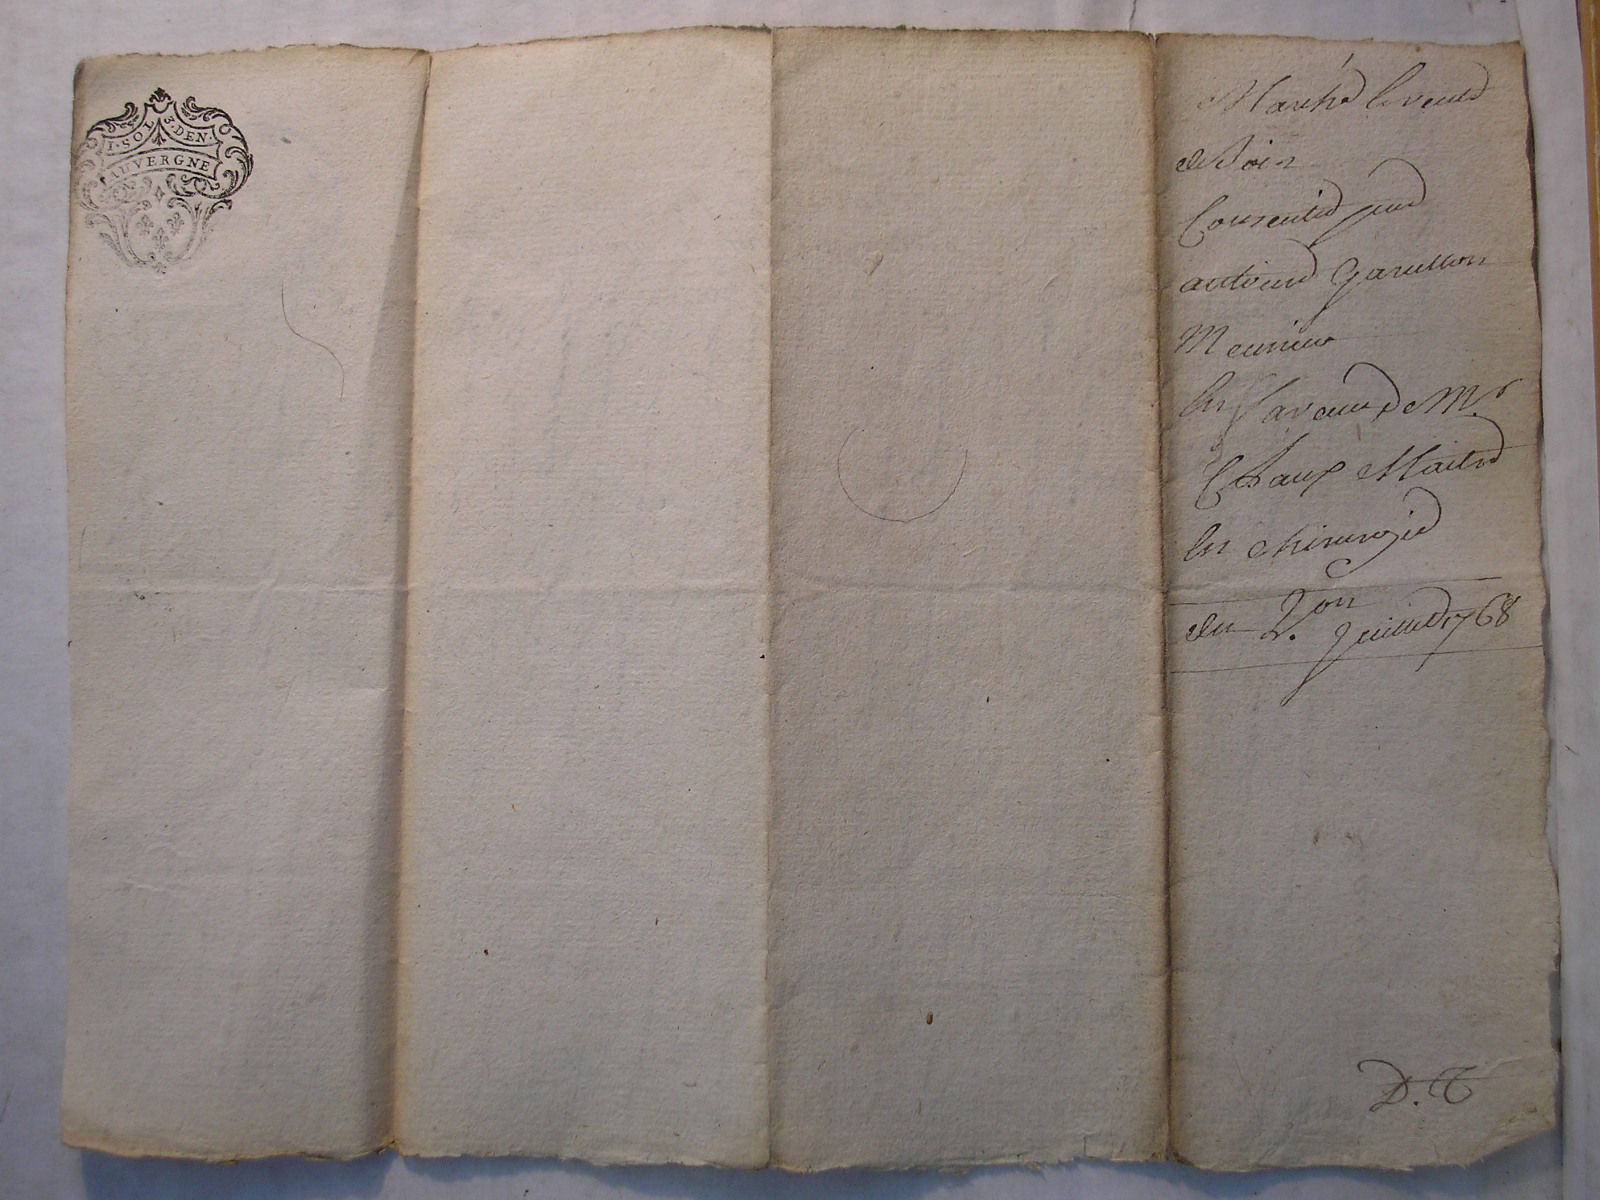 I·SOL 3·DEN·
AUVERGNE
Marché & vente
de foin
Consentie par
antoine
Meunier
En faveur de Mr
Chaux Maitre
En chirurgie
du 2. Juillet 1768
D. T